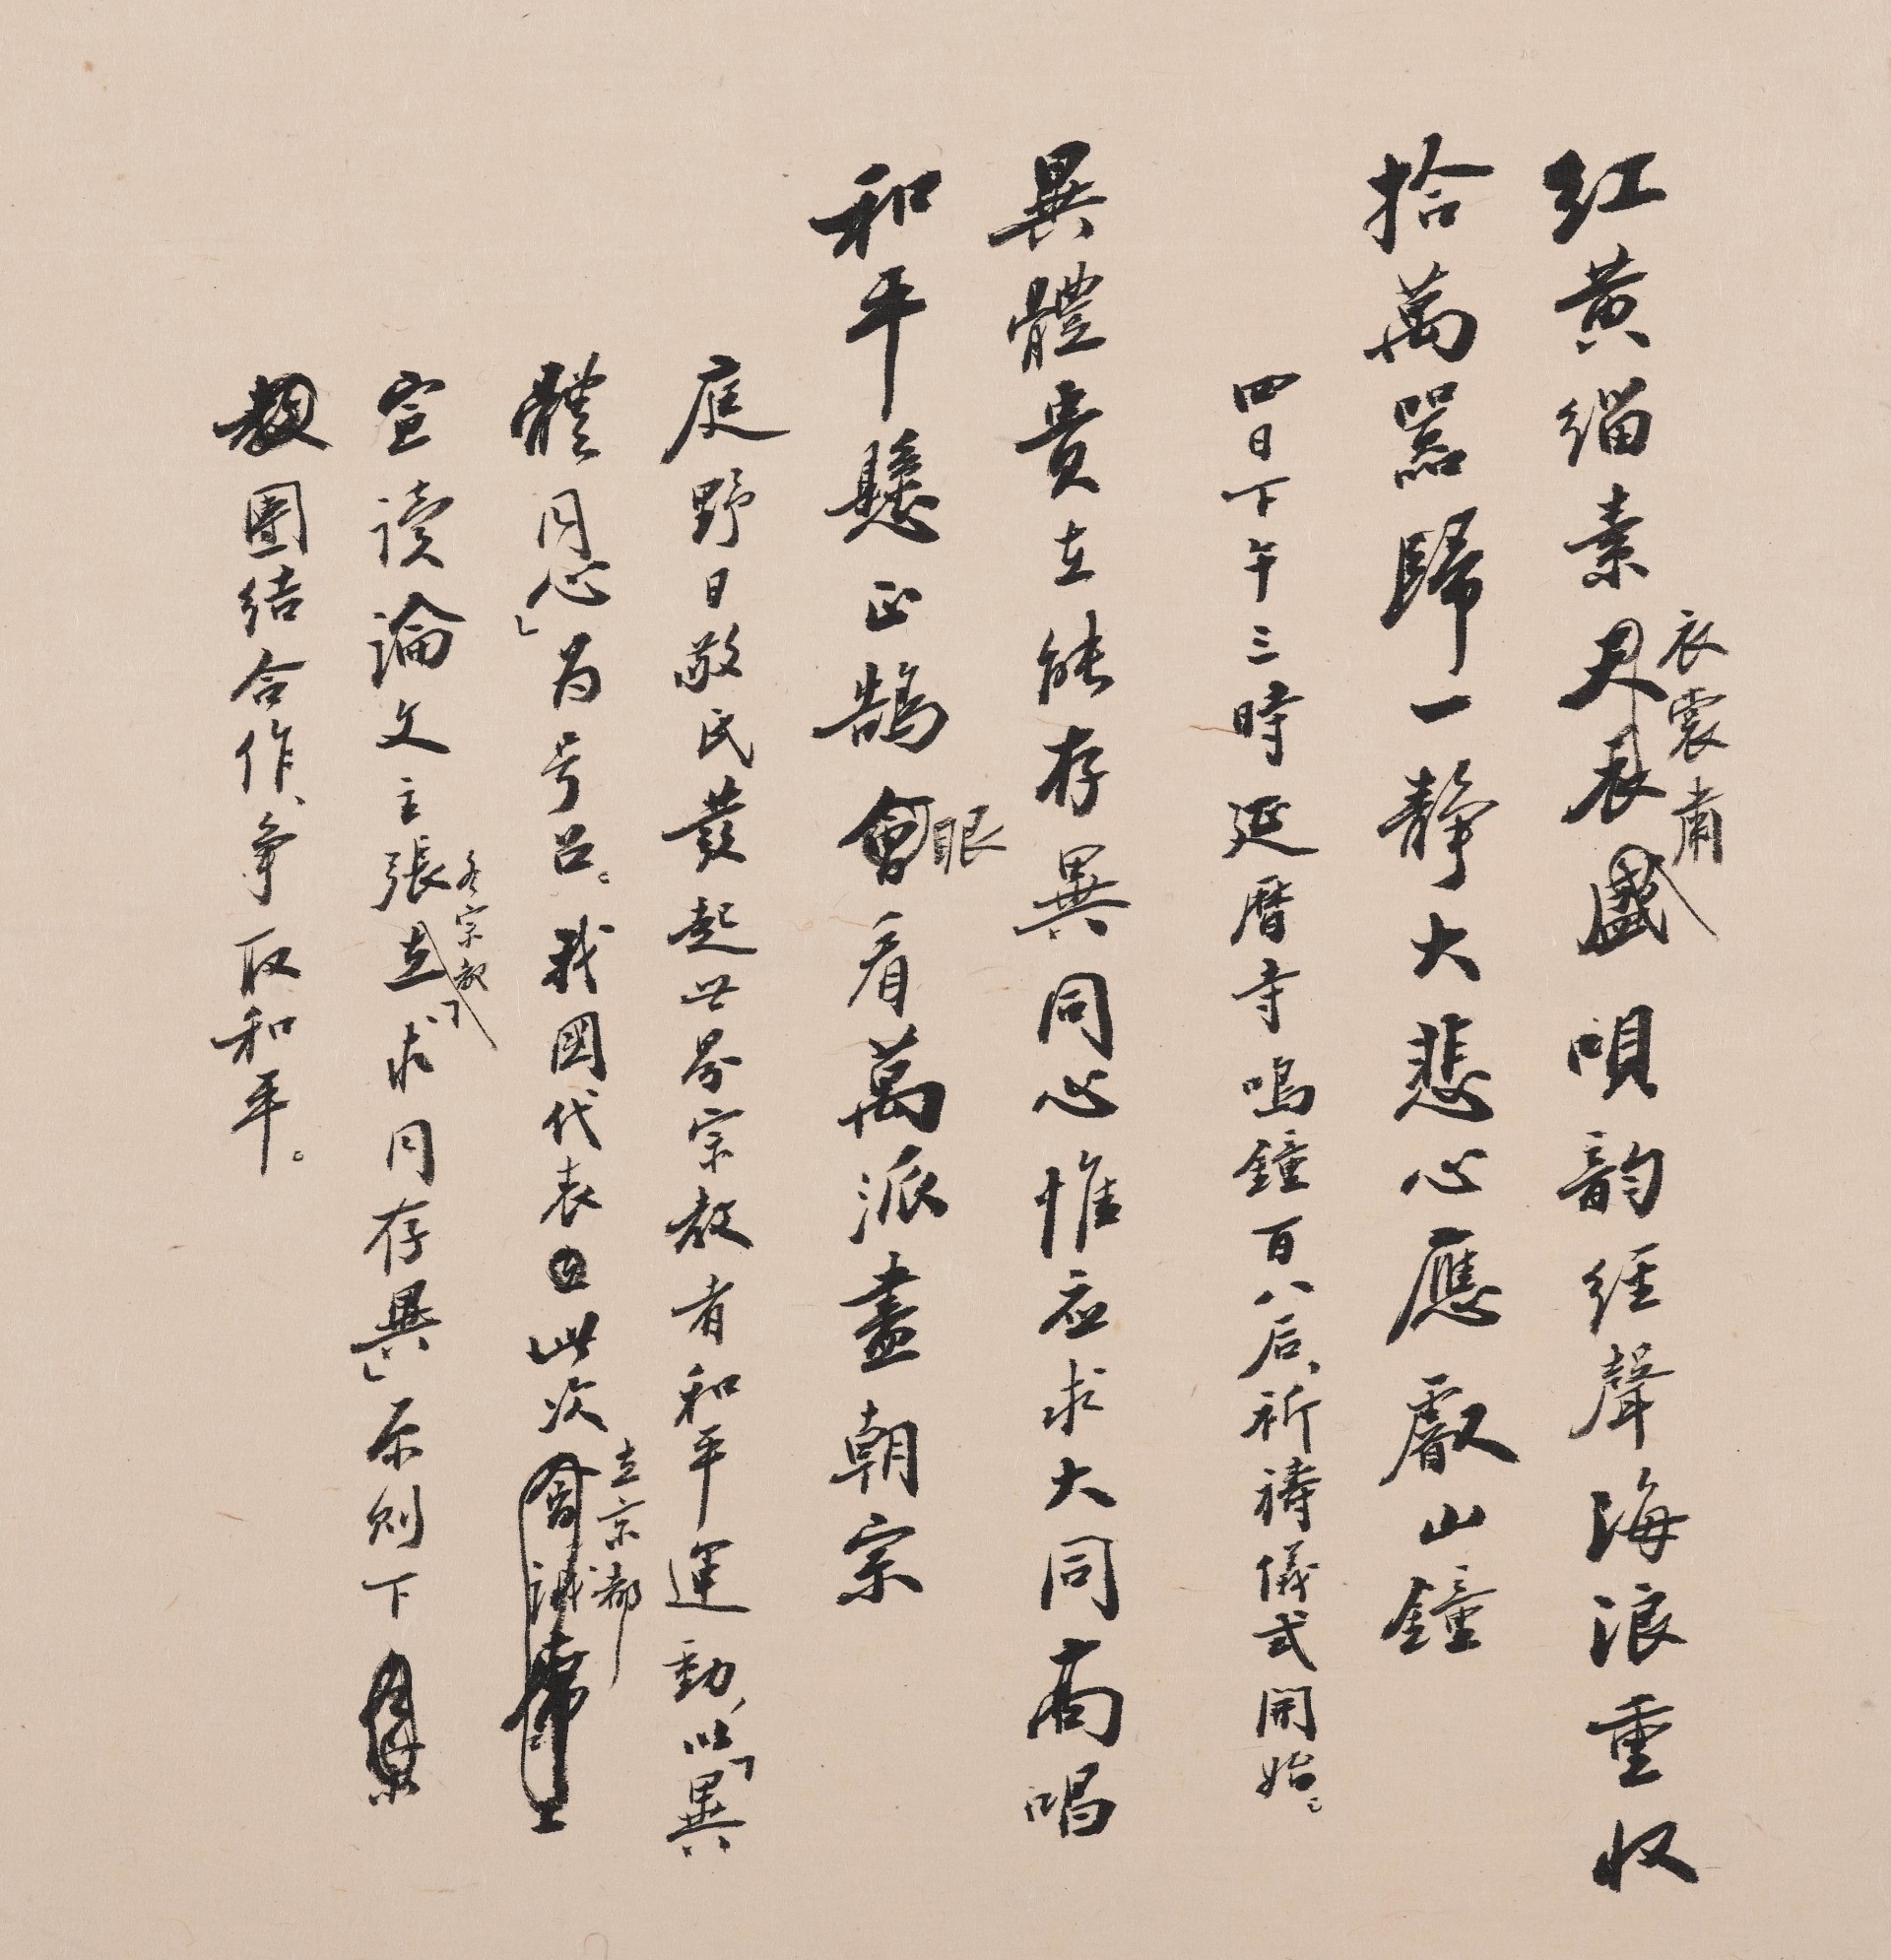 红黄缁素衣裳肅唄韵经聲海浪重收
拾萬嚣歸一静大悲心應叡山鐘
四日下午三時延暦寺鳴鐘百八后、祈禱儀式開始。
異體貴在能存異同心惟应求大同高唱
和平懸正鹄眼看萬派盡朝宗
庭野日敬氏發起世界宗教者和平運動，以「異
體同心」为号召。我國代表此次在京都上
宣读論文主張各宗教「求同存異」原则下
团结合作、争取和平。